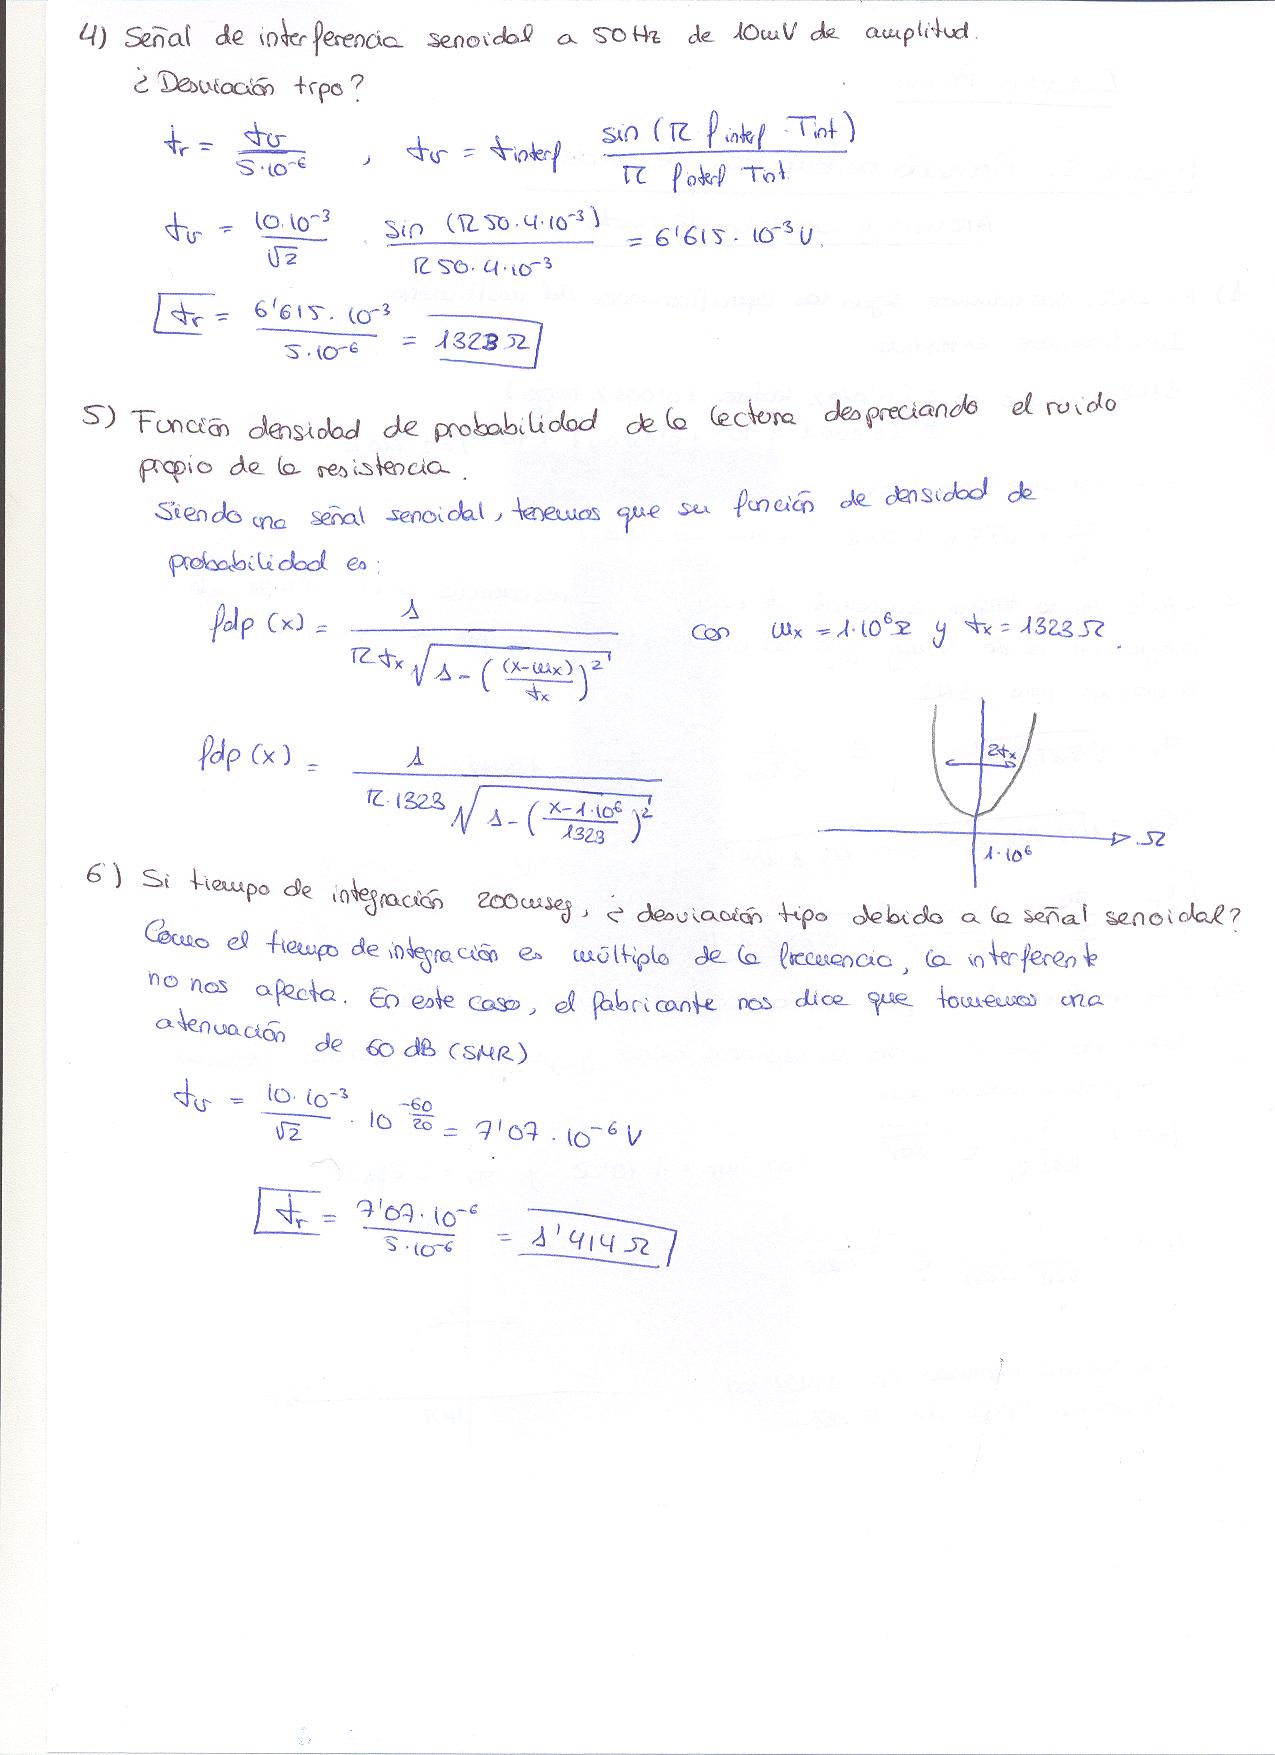 4) Señal de interferencia senoidal a 50Hz de 10mV de amplitud.
¿Desviación tipo?
σr = σv / 5·10^-6 , σv = σinterf · sin (π finterf · Tint) / π finterf Tint.
σv = 10·10^-3 / √2 · sin (π 50·4·10^-3) / π 50·4·10^-3 = 6'615·10^-3 V.
σr = 6'615·10^-3 / 5·10^-6 = 1323 Ω
5) Función densidad de probabilidad de la lectura despreciando el ruido
propio de la resistencia.
Siendo una señal senoidal, tenemos que su función de densidad de
probabilidad es:
fdp (x) = 1 / π σx √(1 - ((x-mx) / σx)^2) con mx = 1·10^6 Ω y σx = 1323 Ω.
2σx
fdp (x) = 1 / π·1323 √(1 - (x-1·10^6 / 1323)^2)
Ω
1·10^6
6) Si tiempo de integración 200mseg, ¿desviación tipo debido a la señal senoidal?
Como el tiempo de integración es múltiplo de la frecuencia, la interferente
no nos afecta. En este caso, el fabricante nos dice que tomemos una
atenuación de 60 dB (SMR)
σv = 10·10^-3 / √2 · 10^(-60/20) = 7'07·10^-6 V
σr = 7'07·10^-6 / 5·10^-6 = 1'414 Ω